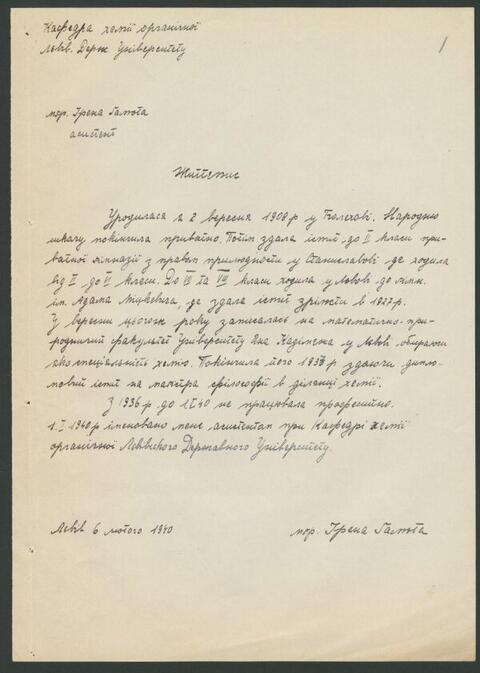 Кафедра хемії органічної
Львів. Держ Університету
1
мгр. Ірена Галюта
асистент
Життєпис
Уродилася я 2 вересня 1908 р у Болехові. Народню
школу покінчила приватно. Потім здала іспит до II класи при-
ватної гімназії з правом прилюдности у Станиславові де ходила
від II до VI класи. До VII та VIII класи ходила у Львові до гімн.
ім. Адама Міцкевича, де здала іспит зрілости в 1927 р.
У вересни цьогож року записалась на математично-при-
родничий факультет Університету Яна Казіміжа у Львові обираючи
яко спеціяльність хемію. Покінчила його 1937 здаючи дипло-
мовий іспит на магістра фільософії в ділянці хемії.
З 1936 р до 1 I 40 не працювала професійно.
1. I 1940 р іменовано мене асистентом при Кафедрі хемії
органічної Львівского Державного Університету.
Львів 6 лютого 1940
мгр. Ірена Галюта